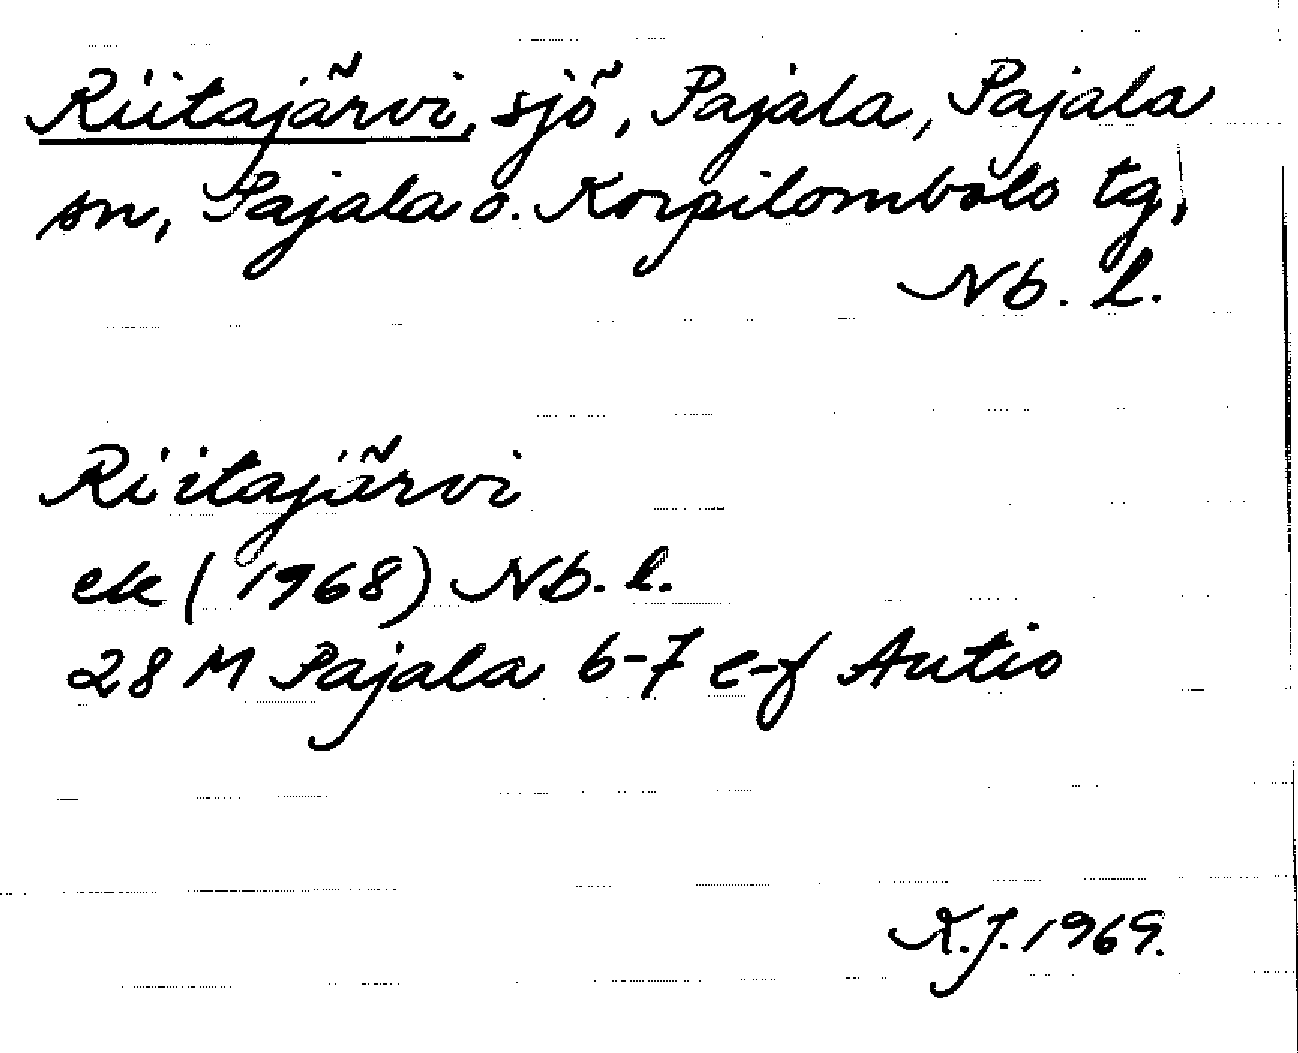 Riitajärvi, sjö, Pajala, Pajala
sn, Pajala o. Korpilombolo tg,
Nb. l.
Riitajärvi
ek (1968) Nb. l.
28 M Pajala 6-7 e-f Autio
K.J. 1969.